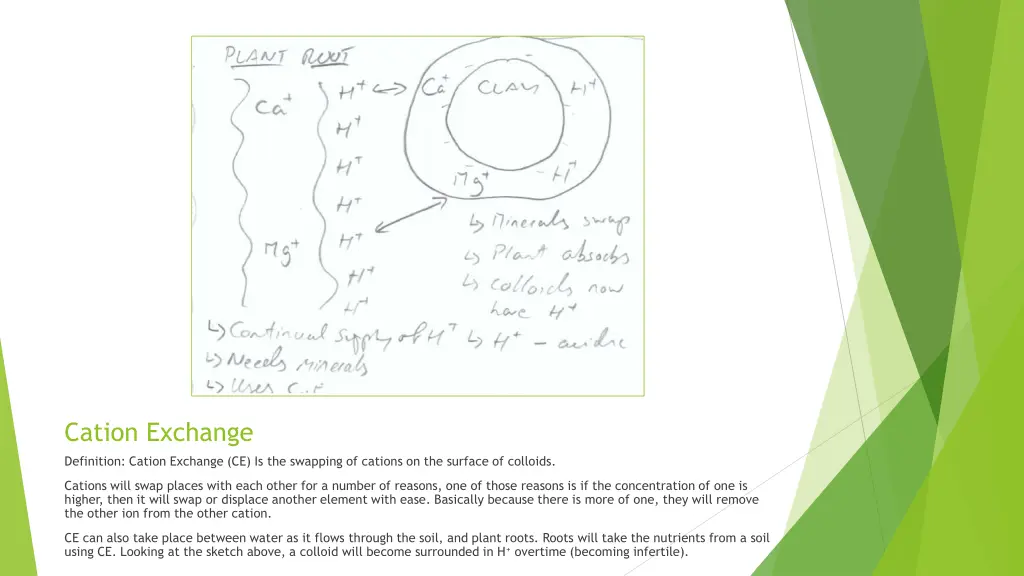 PLANT ROOT
Ca⁺
Mg⁺
H⁺
H⁺
H⁺
H⁺
H⁺
H⁺
H⁺
Ca⁺ CLAY H⁺
Mg⁺ H⁺
↳ Minerals swap
↳ Plant absorbs
↳ Colloids now
have H⁺
↳ H⁺ – acidic
↳ Continual supply of H⁺
↳ Needs minerals
↳ Uses C.E
Cation Exchange
Definition: Cation Exchange (CE) Is the swapping of cations on the surface of colloids.
Cations will swap places with each other for a number of reasons, one of those reasons is if the concentration of one is
higher, then it will swap or displace another element with ease. Basically because there is more of one, they will remove
the other ion from the other cation.
CE can also take place between water as it flows through the soil, and plant roots. Roots will take the nutrients from a soil
using CE. Looking at the sketch above, a colloid will become surrounded in H⁺ overtime (becoming infertile).